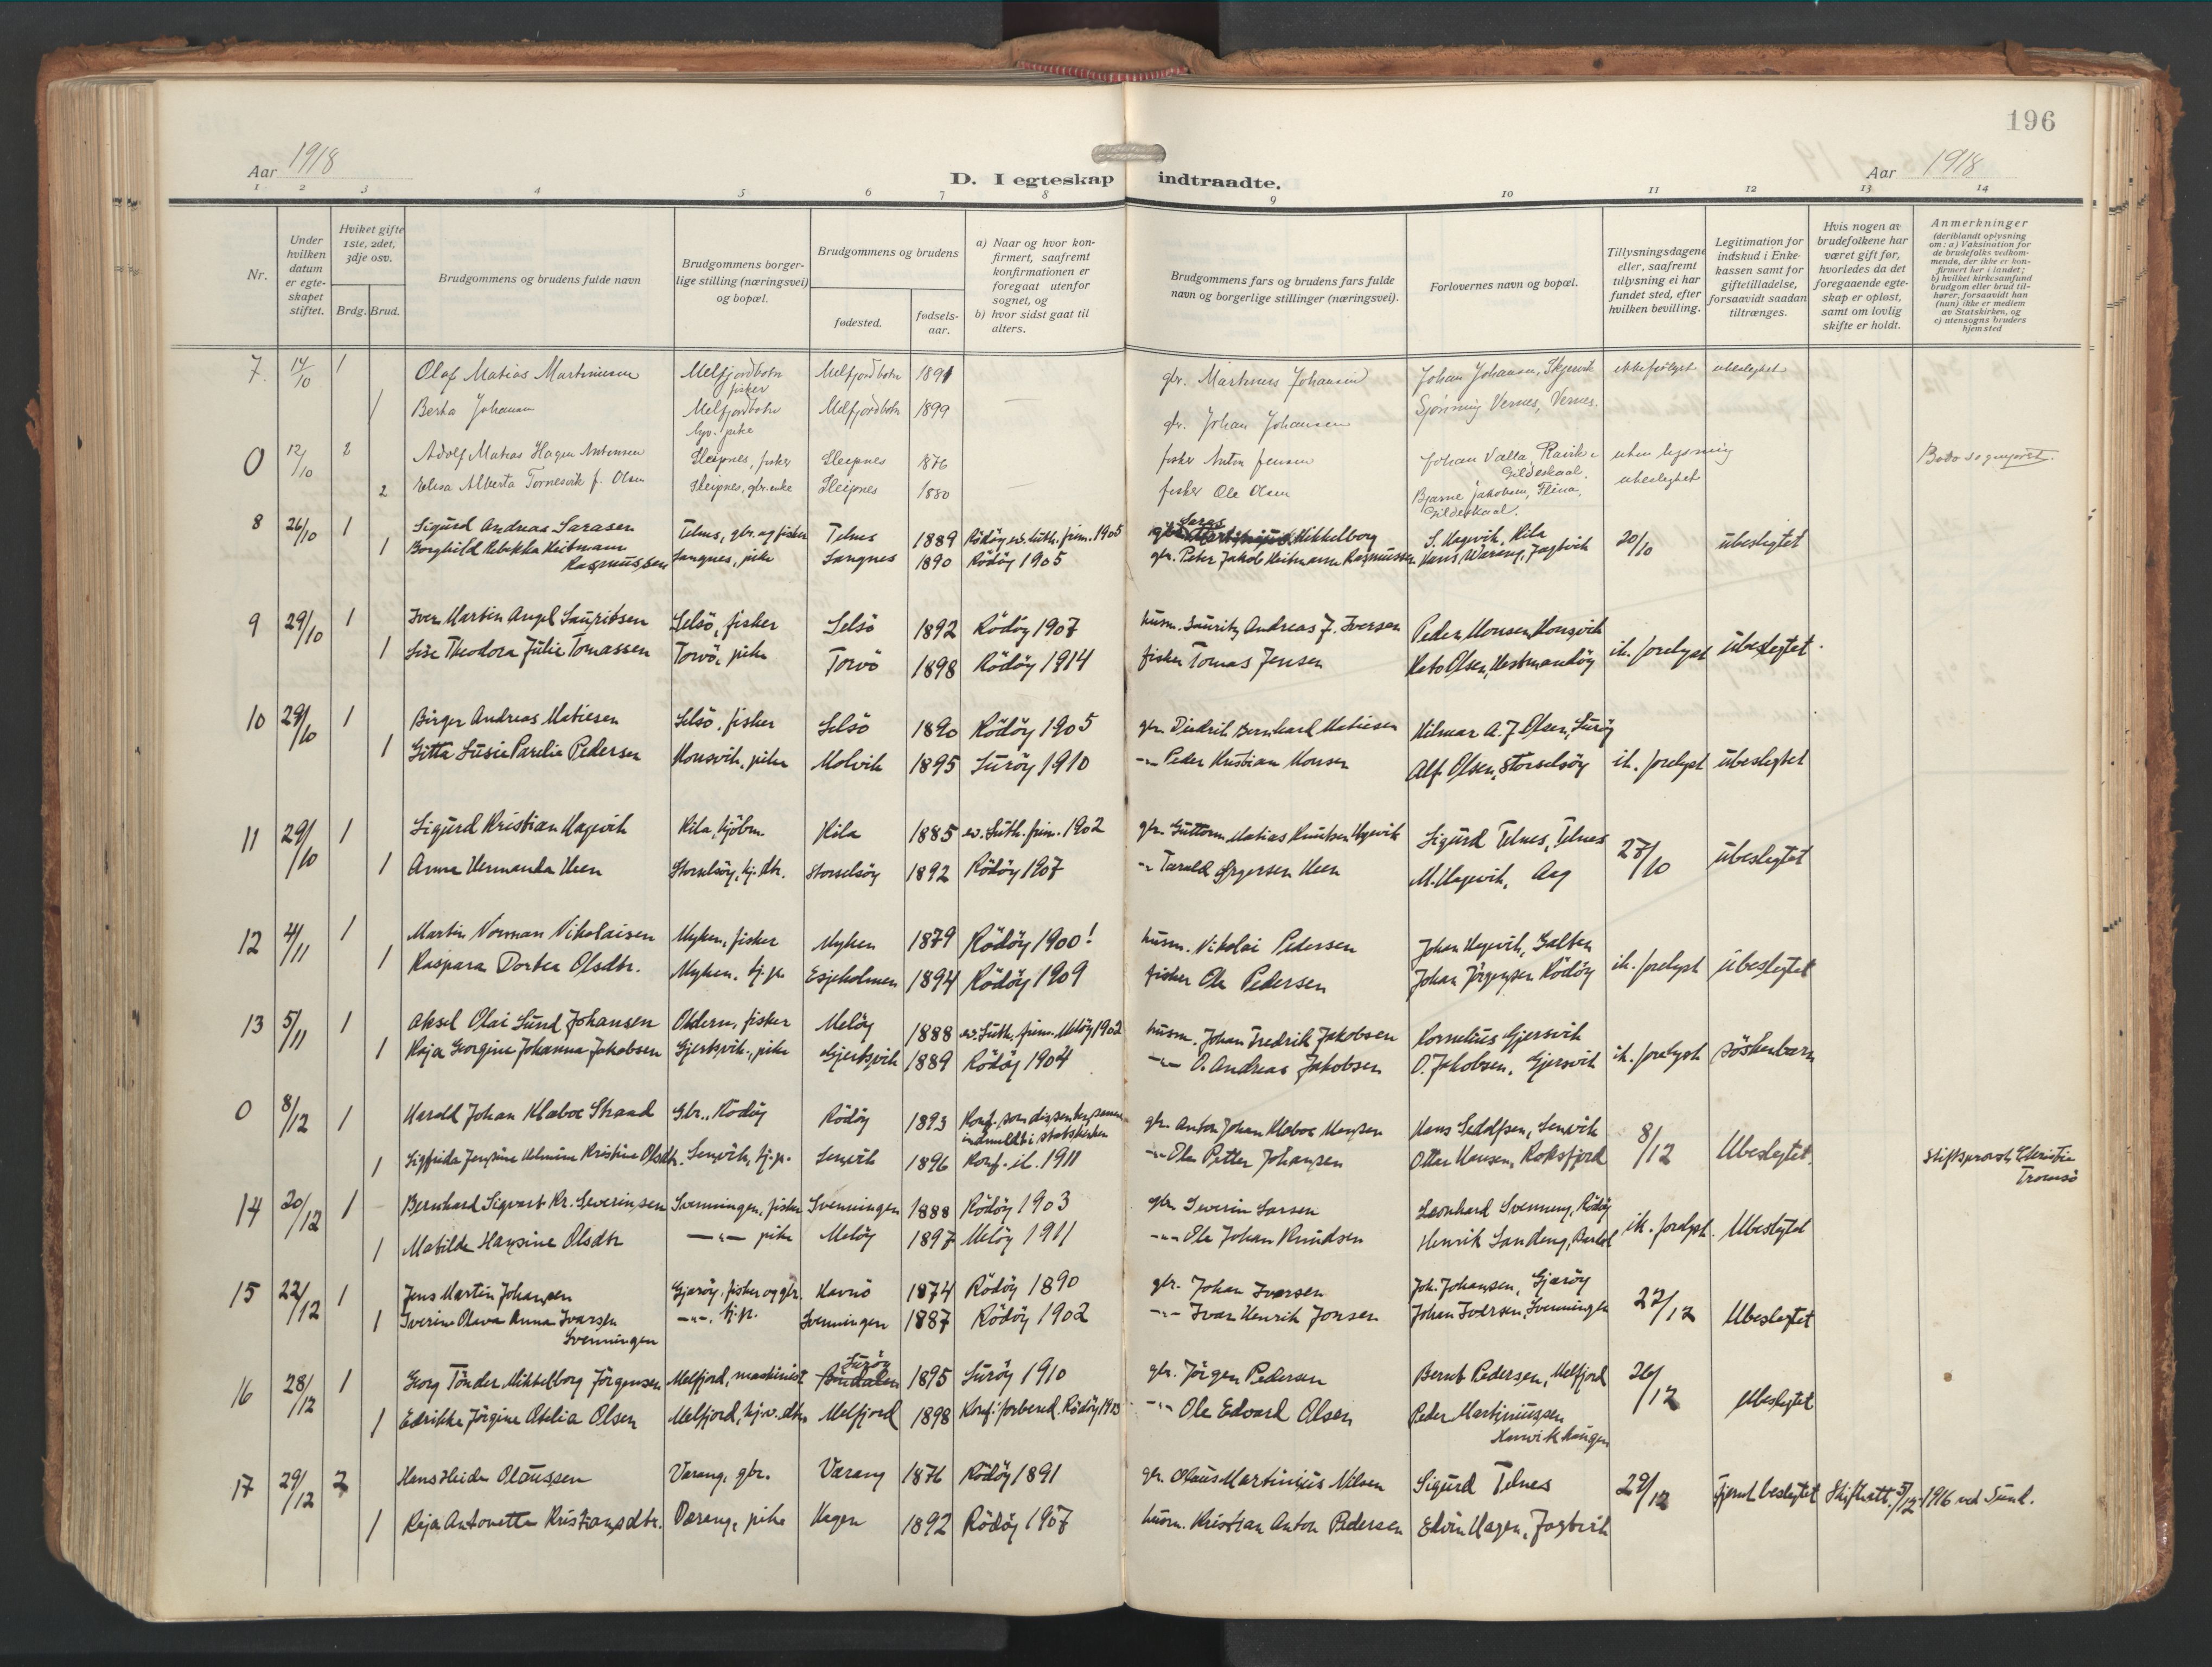 196
Aar 1918
D. I egteskap indtraadte.
Aar 1918
1 2 3 4 5 6 7 8 9 10 11 12 13 14
Nr.
Under hvilken datum er egteskapet stiftet.
Hviket gifte 1ste, 2det, 3dje osv.
Brdg. Brud.
Brudgommens og brudens fulde navn
Brudgommens borgerlige stilling (næringsvei) og bopæl.
Brudgommens og brudens
fødested.
fødselsaar.
a) Naar og hvor konfirmert, saafremt konfirmationen er foregaat utenfor sognet, og
b) hvor sidst gaat til alters.
Brudgommens fars og brudens fars fulde navn og borgerlige stillinger (næringsvei).
Forlovernes navn og bopæl.
Tillysningsdagene eller, saafremt tillysning ei har fundet sted, efter hvilken bevilling.
Legitimation for indskud i Enkekassen samt for giftetilladelse, forsaavidt saadan tiltrænges.
Hvis nogen av brudefolkene har været gift før, hvorledes da det foregaaende egteskap er opløst, samt om lovlig skifte er holdt.
Anmerkninger
(deriblandt oplysning om: a) Vaksination for de brudefolks vedkommende, der ikke er konfirmert her i landet;
b) hvilket kirkesamfund brudgom eller brud tilhører, forsaavidt han (hun) ikke er medlem av Statskirken, og
c) utensogns bruders hjemsted
7. 14/10 1 Olaf Matias Martinussen Melfjordbotn fisker Melfjordbotn 1891 gbr. Martinus Johansen Johan Johansen, Skjervik ikke forlyst ubeslegtet
1 Berta Johansen Melfjordbotn hjv. pike Melfjordbotn 1899 — gbr. Johan Johansen Sjønning Vernes, Vernes.
0 12/10 2 Adolf Matias Hagen Antonsen Sleipnes, fisker Sleipnes 1876 fisker Anton Jensen Johan Valla, Ravik i Gildeskaal uten lysning Bodø sogneprest.
2 Elisa Alberta Tornesvik f. Olsen Sleipnes, gbr. enke Sleipnes 1880 — fisker Ole Olsen Bjarne Jakobsen, Fleina, Gildeskaal. ubeslegtet
8 26/10 1 Sigurd Andreas Larasen Telnes, gbr. og fisker Telnes 1889 Rödöy ev. luth. frim. 1905 Mikkelborg S. Hagevik, Kila 20/10 übeslegtet
1 Borghild Rebekka Heitmann Rasmüssen Langnes, pike Langnes 1890 Rödöy 1905 gbr. Peter Jakob Heitmann Rasmüssen Hans Wareng, Jagtvik
9 29/10 1 Iver Martin Angel Lauritsen Selsö, fisker Selsö 1892 Rödöy 1907 hüsm. Lauritz Andreas J. Iversen Peder Monsen, Monsvik ik. forlyst übeslegtet.
1 Lise Theodora Jülie Tomassen Torvö, pike Torvö 1898 Rödöy 1914 fisker Tomas Jensen Kato Olsen, Hestmandöy
10 29/10 1 Birger Andreas Matiesen Selsö, fisker Selsö 1890 Rödöy 1905 gbr. Diedrik Bernhard Matiesen Hilmar A. J. Olsen, Luröy
1 Gitta Lüsie Parelia Pedersen Monsvik, pike Molvik 1895 Luröy 1910 -"- Peder Kristian Monsen Alf. Olsen, Storselsöy ik. forlyst übeslegtet
11 29/10 1 Sigurd Kristian Hagevik Kila, kjöbm. Kila 1885 ev. Luth. frim. 1902 gbr. Guttorm Matias Knutsen Hagevik Sigurd Telnes, Telnes 27/10 übeslegtet
1 Anna Hermanda Heen Storselsöy, hj. dtr. Storselsöy 1892 Rödöy 1907 -"- Tarald Heen M. Hagevik, Aag
12 4/11 1 Martin Norman Nikolaisen Myken, fisker Myken 1879 Rödöy 1900! hüsm. Nikolai Pedersen Johan Hagevik, Galten
1 Kaspara Dortea Olsdtr. Myken, hj. p. Esjeholmen 1894 Rödöy 1909 fisker Ole Pedersen Johan Jörgensen Rödöy ik. forlyst übeslegtet
13 5/11 1 Aksel Olai Lünd Johansen Oldern, fisker Melöy 1888 ev. Luth. frim. Melöy 1902 hüsm. Johan Fredrik Jakobsen Kornelius Gjersvik
1 Kaja Georgine Johanna Jakobsen Gjersvik, pike Gjersvik 1889 Rödöy 1904 -"- O. Andreas Jakobsen O. Jakobsen, Gjersvik ik. forlyst söskenbarn
0 8/12 1 Harald Johan Klaboe Strand Gbr., Rödöy Rödöy 1893 Konf. som dissenter, senere indmeldt i statskirken gbr. Anton Johan Klaboe Hansen Hans Sedolfsen, Senvik 8/12 Ubeslegtet. Stiftsprovst Tromsö
1 Sigfrida Jensine Helmine Kristine Olsdtr. Senvik, hj. p. Senvik 1896 Konf. ib. 1911 -"- Ole Petter Johansen Ottar Hansen, Koksfjord
14 20/12 1 Bernhard Sigvart Kr. Severinsen Svenningen, fisker Svenningen 1888 Rödöy 1903 gbr. Severin Larsen Leonhard Svenning, Rödöy
1 Matilde Hansine Olsdtr —"— pike Melöy 1897 Melöy 1911 -"- Ole Johan Knudsen Henrik Sandeng, ik. forlyst. Ubeslegted
15 22/12 1 Jens Martin Johansen Gjeröy, fisker og gbr. Havnö 1874 Rödöy 1890 gbr. Johan Iversen Joh. Johansen, Gjeröy
1 Iverine Olava Anna Ivarsen Svenningen —"—, hj. p. Svenningen 1887 Rödöy 1902 -"- Ivar Henrik Jonsen Johan Iversen, Svenningen 22/12 Ubeslegtet
16 28/12 1 Georg Tönder Mikkelborg Jörgensen Melfjord, maskinist Luröy 1895 Luröy 1910 gbr. Jörgen Pedersen Bernt Pedersen, Melfjord 26/12 Ubeslegtet
1 Edrikke Jörgine Otelia Olsen Melfjord, hj. v. dtr. Melfjord 1898 Konf. forbered. Rödöy 1913 -"- Ole Edvard Olsen Peder Martiniüssen
17 29/12 2 Hans Heide Olaussen Værang, gbr. Værang 1876 Rödöy 1891 gbr. Olaus Martinius Nilsen Sigurd Telnes 29/12 Fjernt beslegtet Skifteatt. 5/12 1916 ved Sund.
1 Kaja Antonette Kristiansdtr. Værang, pike Hagen 1892 Rödöy 1907 hüsm. Kristian Anton Pedersen Edvin Hagen, Jagtvik